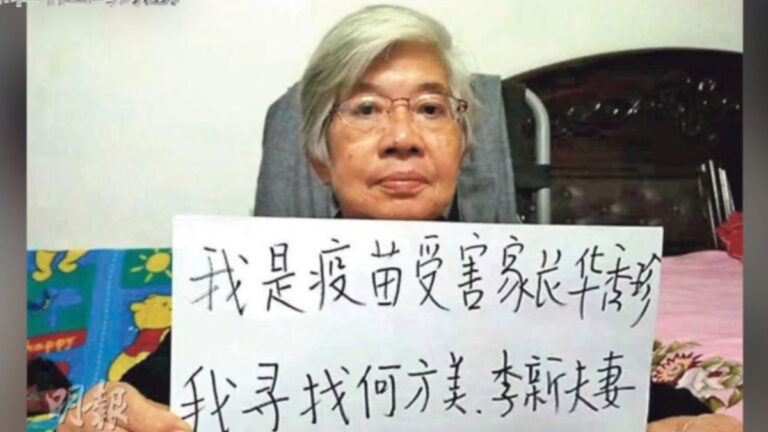 我是疫苗受害家长华秀珍
我寻找何方美.李新夫妻
happy
明報